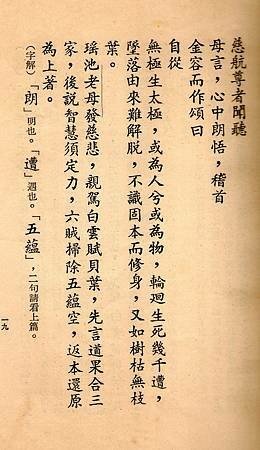 慈航尊者聞聽
母言，心中朗悟，稽首
金容而作頌曰
自從
無極生太極，或為人兮或為物，輪迴生死幾千遭，
墜落由來難解脫，不識固本而修身，又如樹枯無枝
葉。
瑤池老母發慈悲，親駕白雲賦貝葉，先言道果合三
家，後説智慧須定力，六賊掃除五蘊空，返本還原
為上著。
（字解）「朗」明也。「遭」遇也。「五蘊」，二句請看上篇。
一九